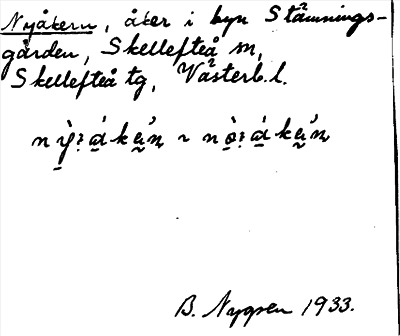 Nyåkern, åker i byn Stämnings-
gården, Skellefteå sn,
Skellefteå tg, Västerb. l.
B. Nygren 1933.